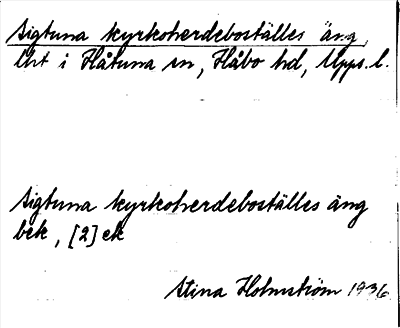 Sigtuna kyrkoherdeboställes äng,
Lht i Håtuna sn, Håbo hd, Upps. l.
Sigtuna kyrkoherdeboställes äng
bek, [2] ek
Stina Holmström 1936